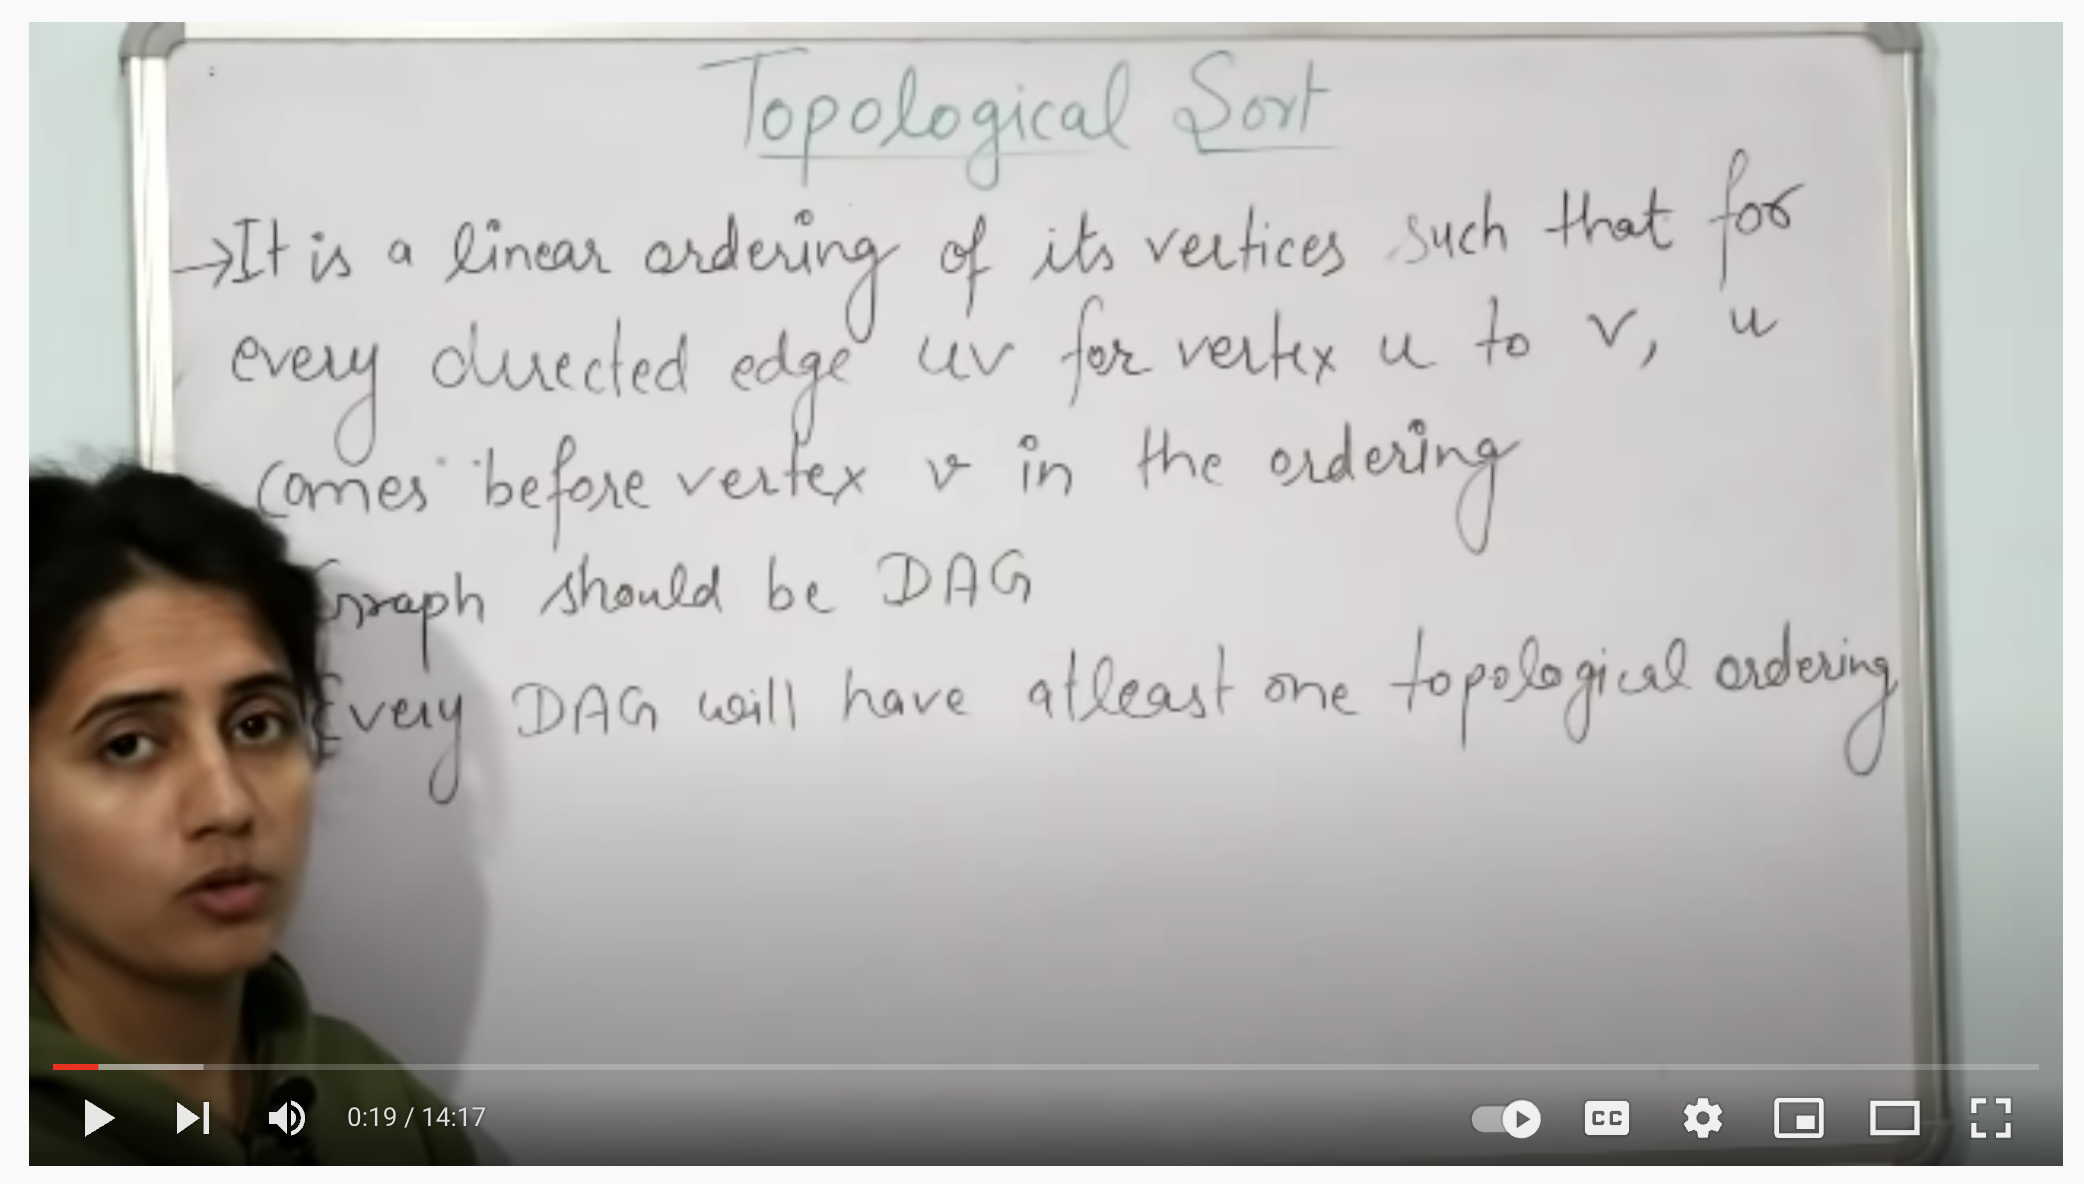 Topological Sort
→It is a linear ordering of its vertices such that for
every directed edge uv for vertex u to v, u
Comes before vertex v in the ordering
Graph should be DAG
Every DAG will have atleast one topological ordering
0:19 / 14:17
CC